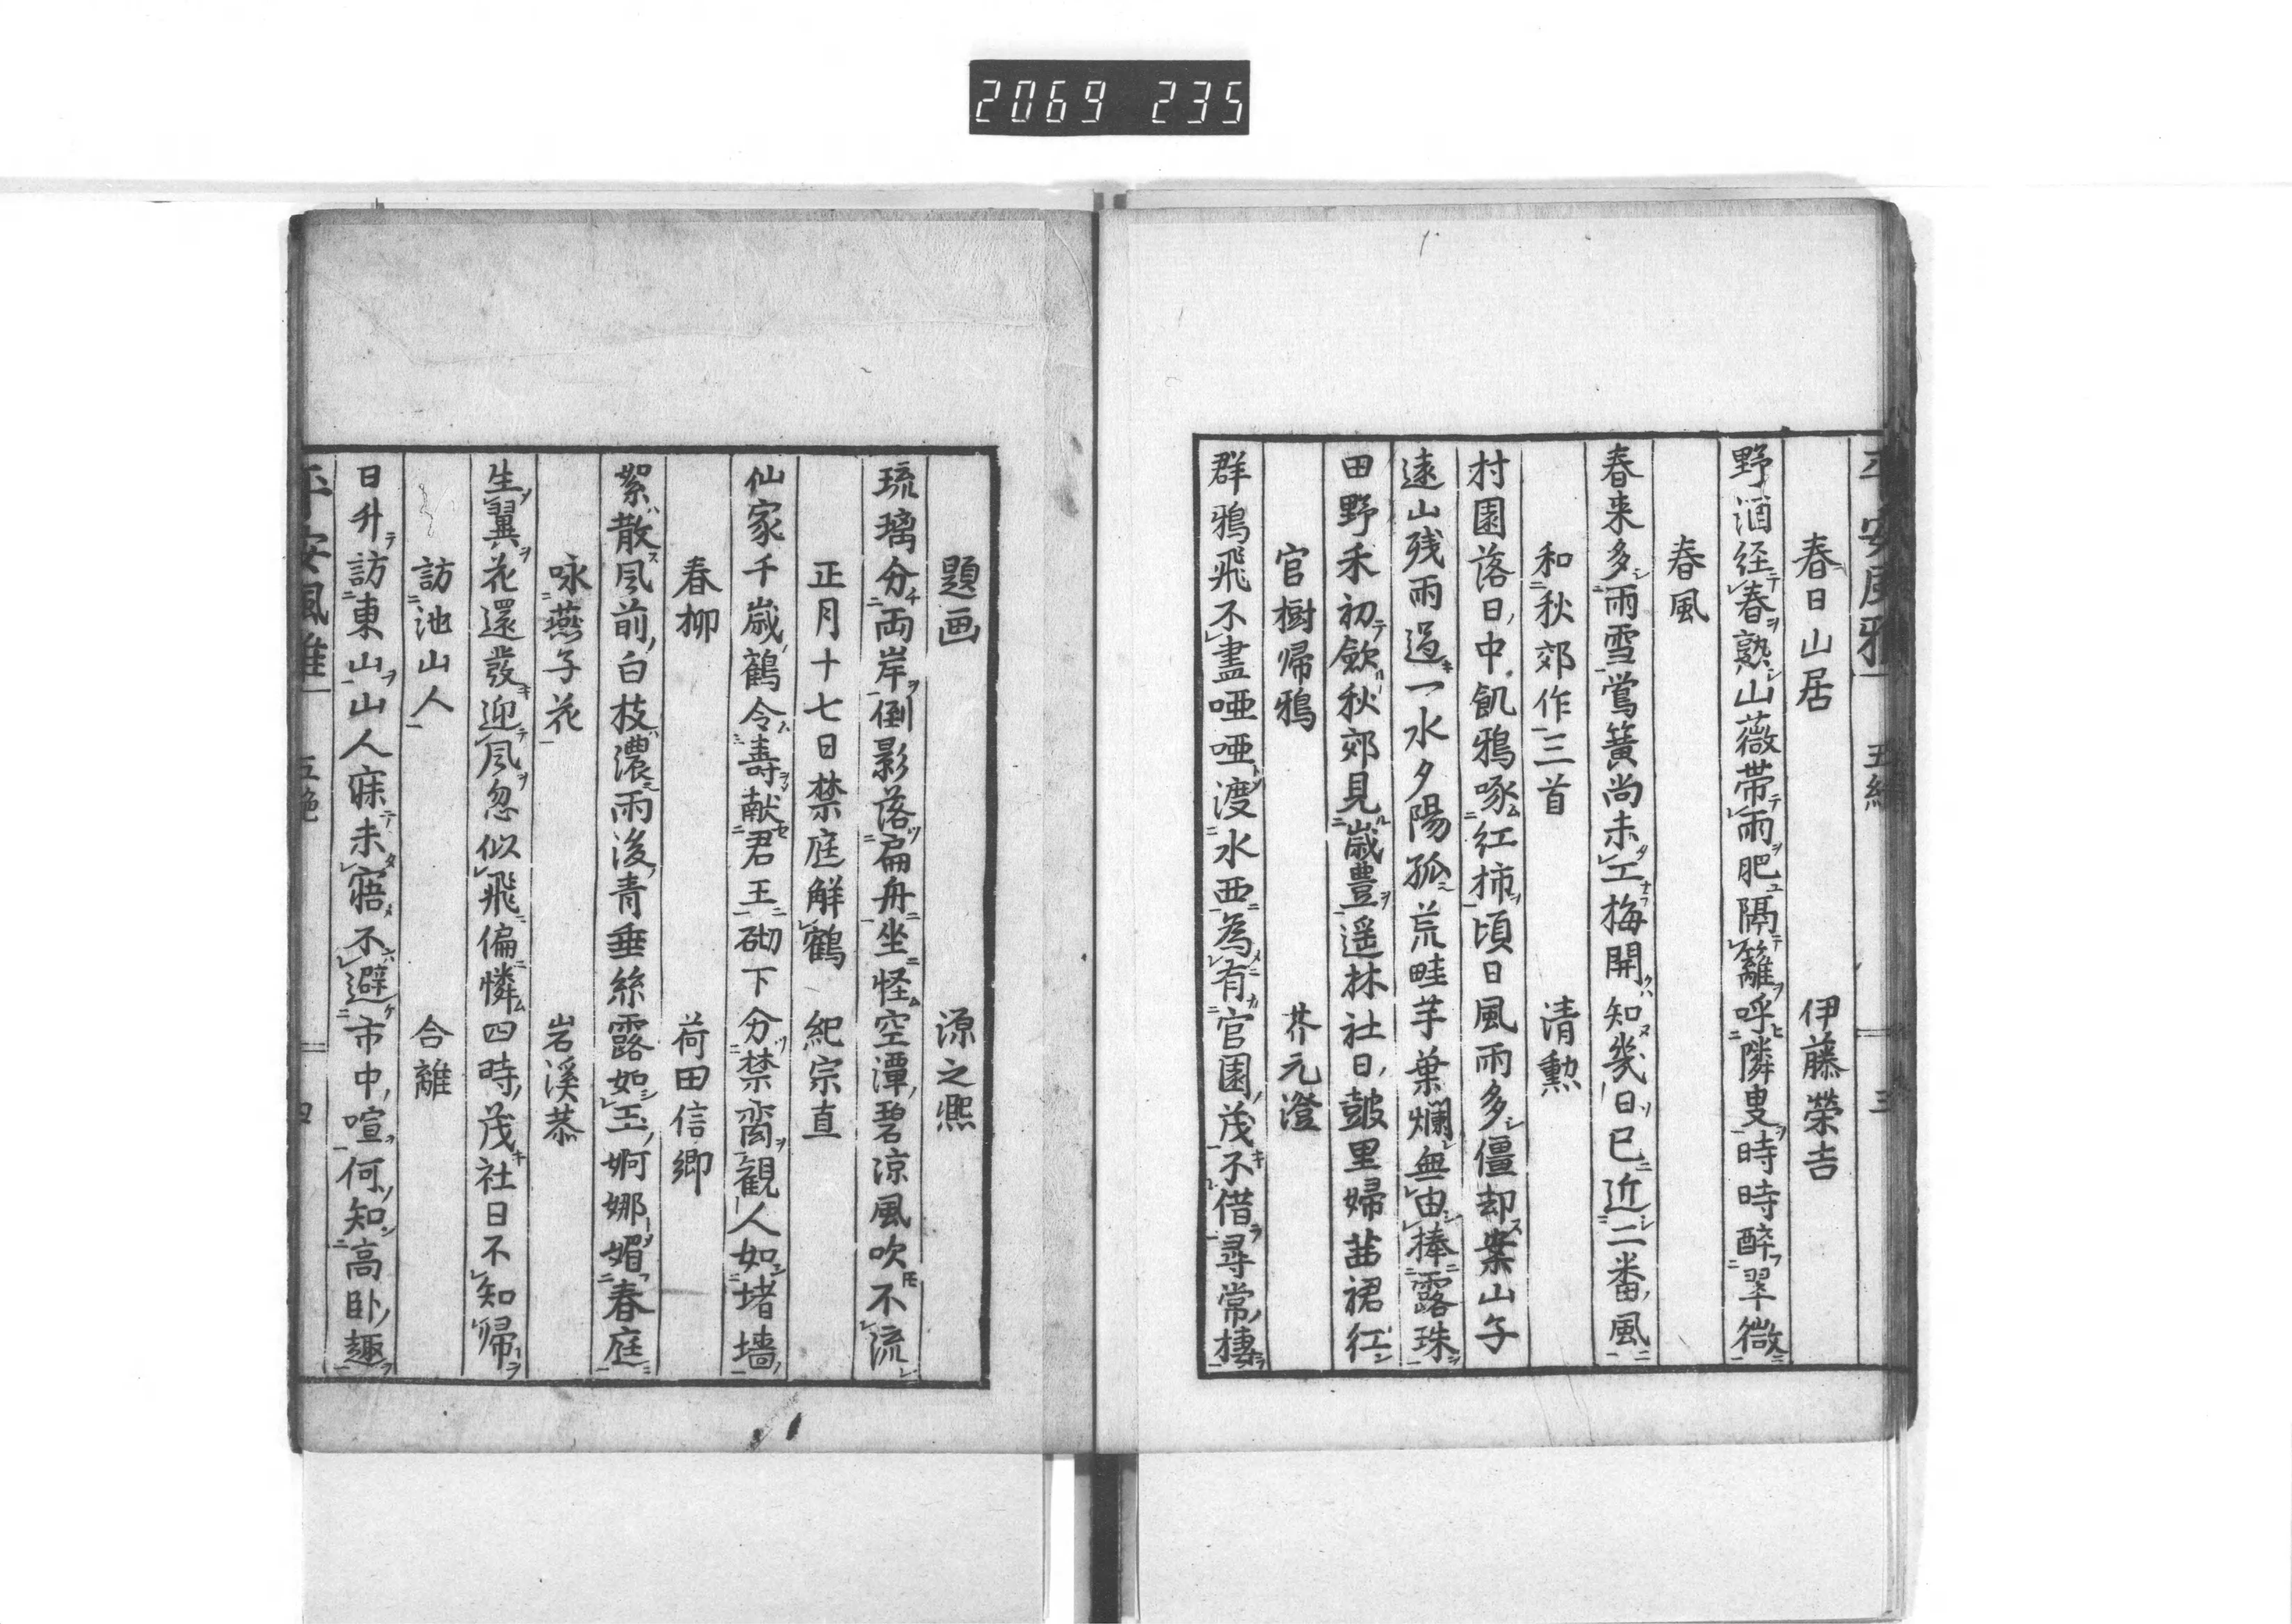 2069 235
平安風雅 五絶 三
春日山居 伊藤榮吉
野酒経春熟山薇帯雨肥隔籬呼隣叟時時酔翠微
春風
春来多雨雪鴬簧尚未工梅開知幾日已近二番風
和秋郊作三首 清勲
村園落日中飢鴉啄紅柿頃日風雨多僵却案山子
遠山残雨過一水夕陽孤荒畦芋葉爛無由捧露珠
田野禾初歛秋郊見歳豊遥林社日鼓里婦茜裙紅
官樹帰鴉 芥元澄
群鴉飛不盡唖唖渡水西為有官園茂不借尋常棲
題画 源之熈
琉璃分両岸倒影落扁舟坐怪空潭碧涼風吹不流
正月十七日禁庭解鶴 紀宗直
仙家千歳鶴令壽献君王砌下分禁臠観人如堵墻
春柳 荷田信郷
絮散风前白枝濃雨後青垂絲露如玉婀娜媚春庭
咏燕子花 岩溪恭
生翼花還發迎风忽似飛偏憐四時茂社日不知帰
訪池山人 合離
日升訪東山山人寐未寤不避市中喧何知高臥趣
平安風雅 五絶 四